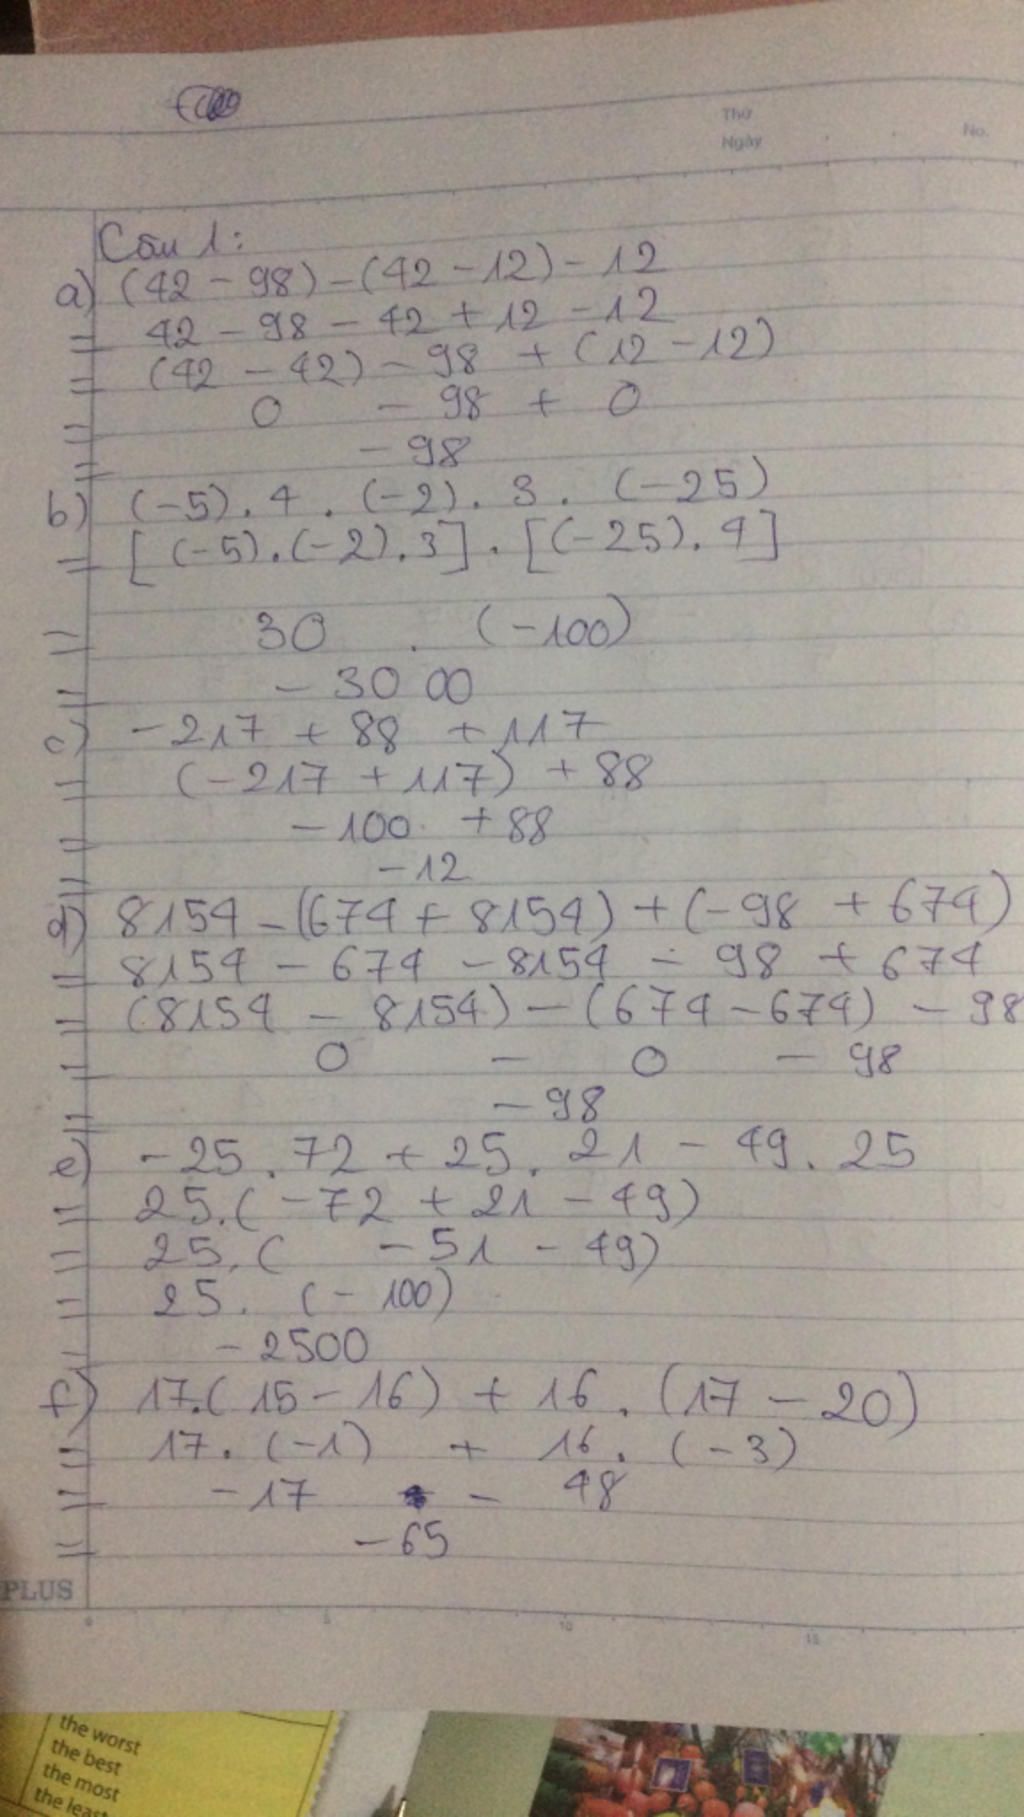 Thứ
Ngày
No.
Câu 1:
a) (42 - 98) - (42 - 12) - 12
= 42 - 98 - 42 + 12 - 12
= (42 - 42) - 98 + (12 - 12)
= 0 - 98 + 0
= - 98
b) (-5) . 4 . (-2) . 3 . (-25)
= [(-5) . (-2) . 3] . [(-25) . 4]
= 30 . (-100)
= - 3000
c) - 217 + 88 + 117
= (-217 + 117) + 88
= - 100 + 88
= - 12
d) 8154 - (674 + 8154) + (-98 + 674)
= 8154 - 674 - 8154 - 98 + 674
= (8154 - 8154) - (674 - 674) - 98
= 0 - 0 - 98
= - 98
e) - 25 . 72 + 25 . 21 - 49 . 25
= 25 . (- 72 + 21 - 49)
= 25 . ( - 51 - 49)
= 25 . (- 100)
= - 2500
f) 17 . (15 - 16) + 16 . (17 - 20)
= 17 . (-1) + 16 . (-3)
= - 17 - 48
= - 65
PLUS
0 5 10 15
the worst
the best
the most